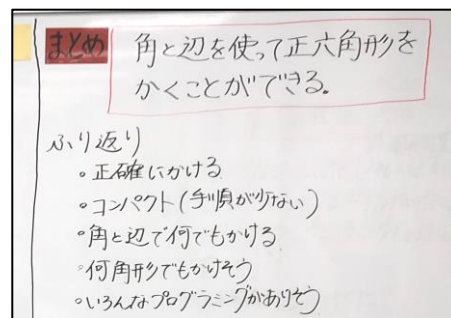 まとめ 角と辺を使って正六角形を
かくことができる。
ふり返り
・正確にかける
・コンパクト(手順が少ない)
・角と辺で何でもかける
・何角形でもかけそう
・いろんなプログラミングがありそう